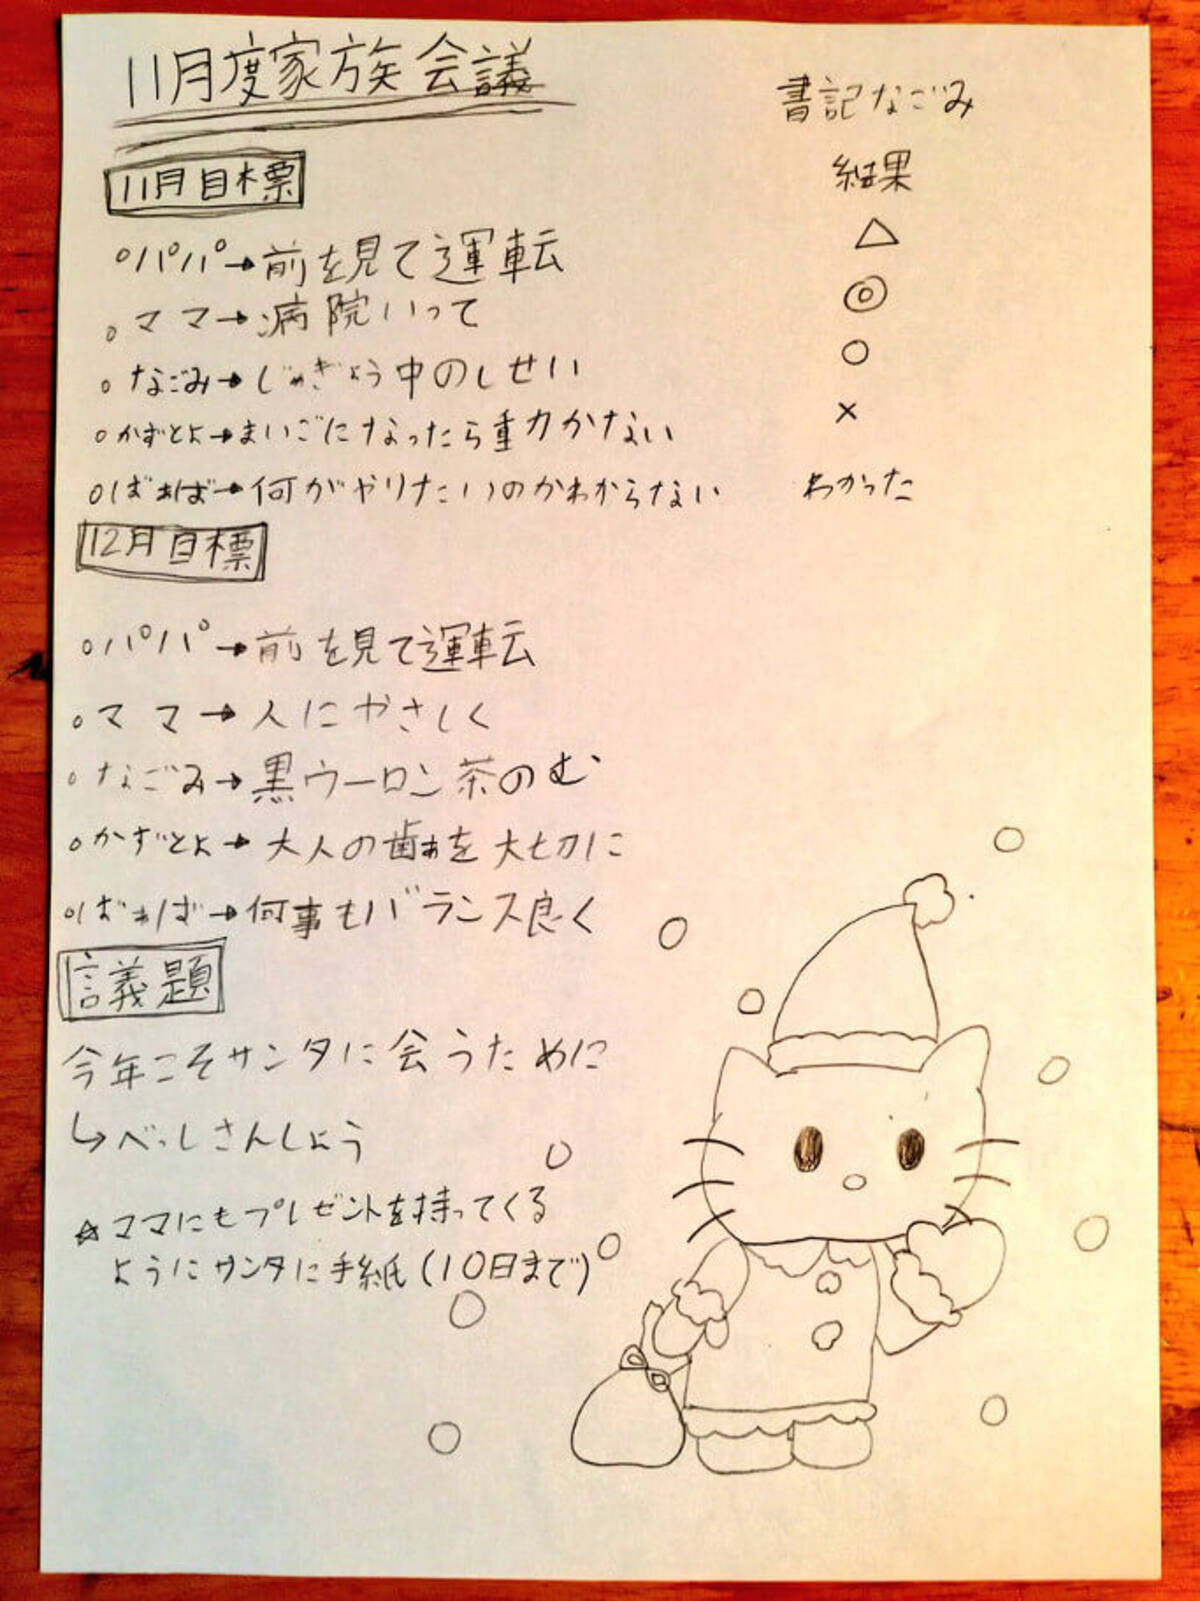 11月度家族会議
書記なごみ
11月目標
結果
○パパ→前を見て運転 △
○ママ→病院いって ◎
○なごみ→じゅぎょう中のしせい ○
○かずとよ→まいごになったら動かない ×
○ばぁば→何がやりたいのかわからない わかった
12月目標
○パパ→前を見て運転
○ママ→人にやさしく
○なごみ→黒ウーロン茶のむ
○かずとよ→大人の歯を大切に
○ばぁば→何事もバランス良く
議題
今年こそサンタに会うために
↳べっしさんしょう
☆ママにもプレゼントを持ってくる
ようにサンタに手紙(10日まで)